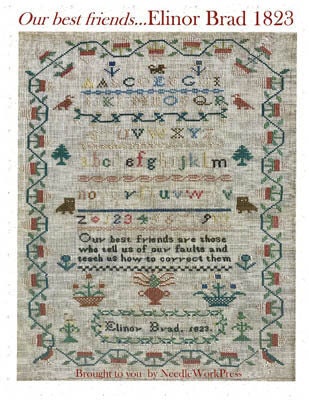 Our best friends...Elinor Brad 1823
A C E G I
K M O Q R
U V W X Y Z
a b c d e f g h i j k l m
n o r u v w v
Z 1 2 3 4 9
Our best friends are those
who tell us of our faults and
teach us how to correct them
Elinor Brad. 1823.
Brought to you by NeedleWorkPress